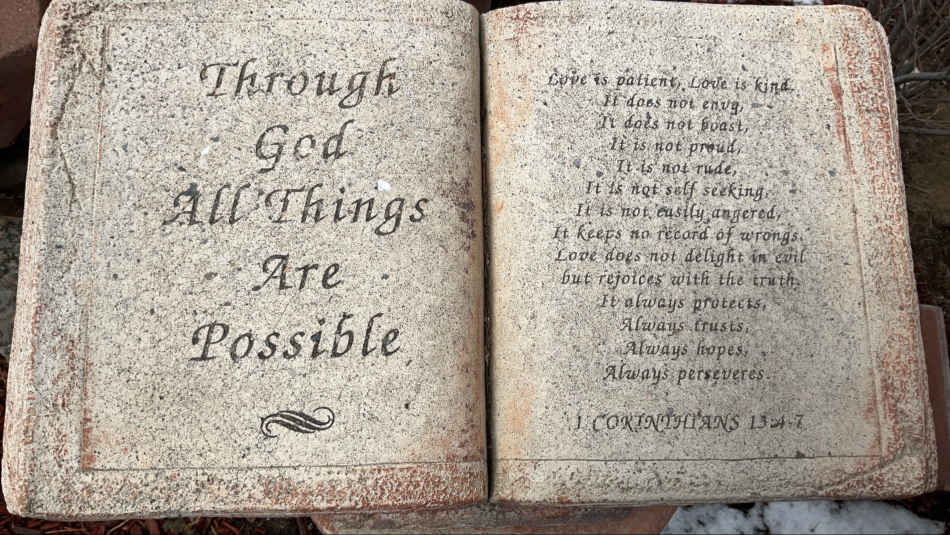 Through
God
All Things
Are
Possible
Love is patient, Love is kind.
It does not envy,
It does not boast,
It is not proud,
It is not rude,
It is not self seeking,
It is not easily angered,
It keeps no record of wrongs.
Love does not delight in evil
but rejoices with the truth.
It always protects,
Always trusts,
Always hopes,
Always perseveres.
1 CORINTHIANS 13:4-7